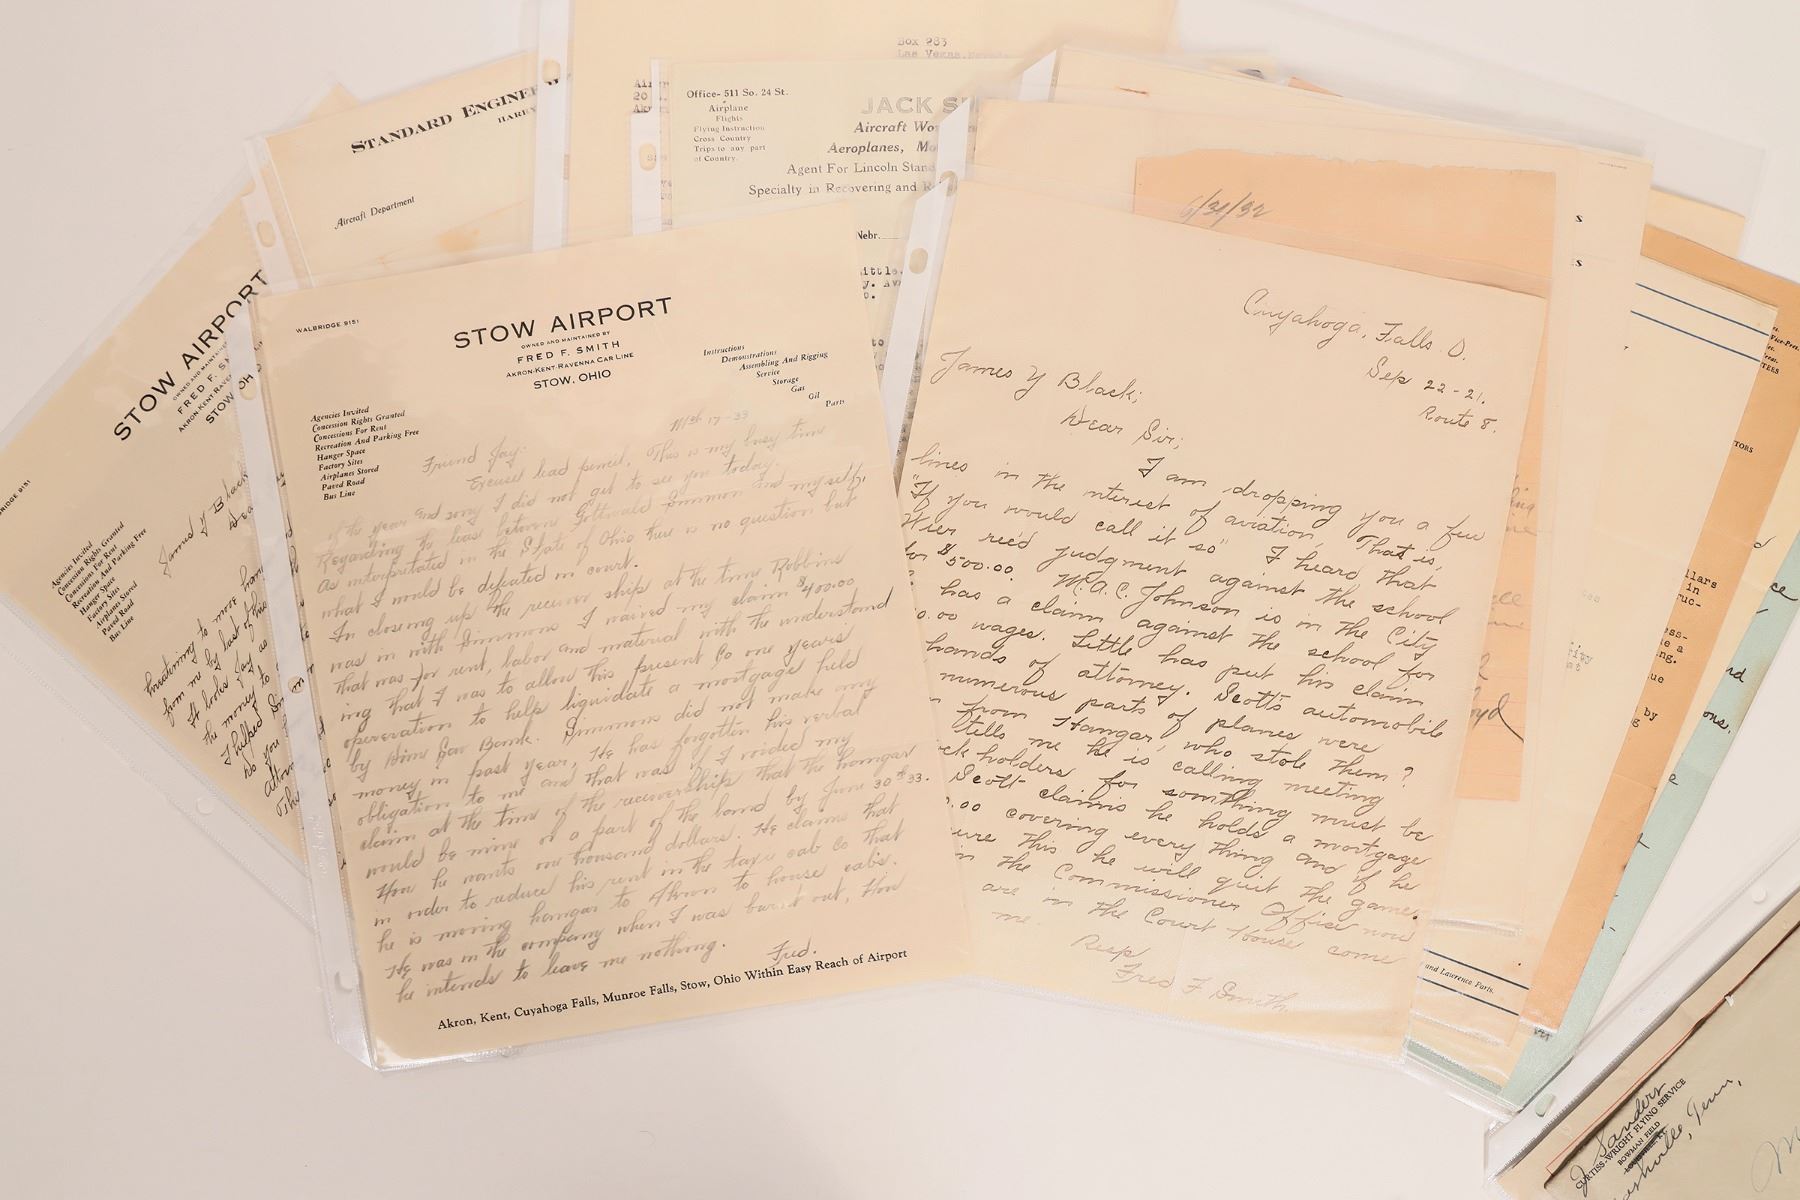 Box 263
Las Vegas, Nevada
STANDARD ENGINEE
HARRY
Aircraft Department
Office- 511 So. 24 St.
Airplane
Flights
Flying Instruction
Cross Country
Trips to any part
of Country.
JACK S
Aircraft Wo
Aeroplanes, Mo
Agent For Lincoln Stand
Specialty in Recovering and R
Nebr.
6/30/32
STOW AIRPORT
OWNED AND MAINTAINED
FRED F. S
AKRON-KENT-RAVEN
STOW, OH
WALBRIDGE 9151
Agencies Invited
Concession Rights Granted
Concessions For Rent
Recreation And Parking Free
Hanger Space
Factory Sites
Airplanes Stored
Paved Road
Bus Line
James Y Black
Dea
threatening to move han
from me by last of this
It looks Jay as
the money to
I helped Sim
so you
WALBRIDGE 9151
STOW AIRPORT
OWNED AND MAINTAINED BY
FRED F. SMITH
AKRON-KENT-RAVENNA CAR LINE
STOW, OHIO
Instructions
Demonstrations
Assembling And Rigging
Service
Storage
Gas
Oil
Parts
Agencies Invited
Concession Rights Granted
Concessions For Rent
Recreation And Parking Free
Hanger Space
Factory Sites
Airplanes Stored
Paved Road
Bus Line
Mch 17-33
Friend Jay:
Excuse lead pencil. This is my busy time
of the year and sorry I did not get to see you today.
Regarding the lease between Gottwald Simmon and myself,
As interpretated in the State of Ohio there is no question but
what I would be defeated in court.
In closing up the receiver ships at the time Robbins
was in with Simmons I waived my claim $400.00
that was for rent, labor and material with the understand
ing that I was to allow this present Co one years
operation to help liquidate a mortgage held
by Dime Sav Bank. Simmons did not make any
money in past year, He has forgotten his verbal
obligation to me and that was if I voided my
claim at the time of the receivership that the hangar
would be mine or a part of the bond by June 30th 33.
Now he wants one thousand dollars. He claims that
in order to reduce his rent in the taxi cab Co that
he is moving hangar to Akron to house cab's.
He was in the company when I was burnt out, Now
he intends to leave me nothing.
Fred.
Akron, Kent, Cuyahoga Falls, Munroe Falls, Stow, Ohio Within Easy Reach of Airport
Cuyahoga, Falls O.
Sep 22-21.
Route 8.
James Y Black;
Dear Sir;
I am dropping you a few
lines in the interest of aviation, That is,
"If you would call it so" I heard, that
rec'd judgment against the school
for $500.00. M.A.C. Johnson is in the City
has a claim against the school for
0.00 wages. Little has put his claim
hands of attorney. Scott's automobile
numerous parts of planes were
from Hangar, who stole them?
tells me he is calling meeting
ck holders for something must be
Scott claims he holds a mortgage
0.00 covering every thing and if he
ure this he will quit the game.
in the Commissioner Office now
are in the Court House come
me.
Resp
Fred F Smith.
and Lawrence Furts.
J Sanders
CURTISS-WRIGHT FLYING SERVICE
BOWMAN FIELD
LOUISVILLE, KY.
Nashville, Tenn,